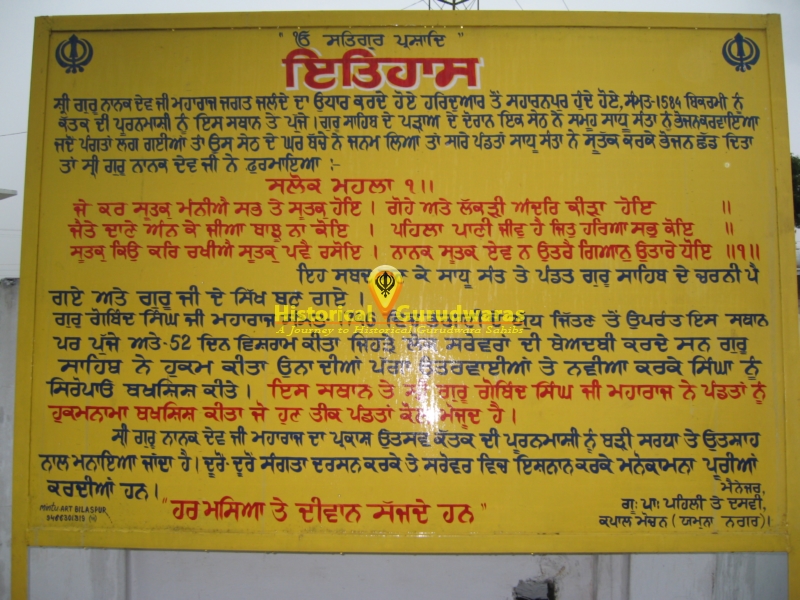 " ੴ ਸਤਿਗੁਰ ਪ੍ਰਸਾਦਿ "
ਇਤਿਹਾਸ
ਸ੍ਰੀ ਗੁਰੂ ਨਾਨਕ ਦੇਵ ਜੀ ਮਹਾਰਾਜ ਜਗਤ ਜਲੰਦੇ ਦਾ ਉਧਾਰ ਕਰਦੇ ਹੋਏ ਹਰਿਦੁਆਰ ਤੋਂ ਸਹਾਰਨਪੁਰ ਹੁੰਦੇ ਹੋਏ, ਸੰਮਤ-1584 ਬਿਕਰਮੀ ਨੂੰ
ਕੱਤਕ ਦੀ ਪੂਰਨਮਾਸ਼ੀ ਨੂੰ ਇਸ ਸਥਾਨ ਤੇ ਪੁੱਜੇ। ਗੁਰੂ ਸਾਹਿਬ ਦੇ ਪੜਾਅ ਦੇ ਦੌਰਾਨ ਇਕ ਸੇਠ ਨੇ ਸਮੂਹ ਸਾਧੂ ਸੰਤਾ ਨੂੰ ਭੋਜਨ ਕਰਵਾਇਆ
ਜਦੋਂ ਪੰਗਤਾਂ ਲੱਗ ਗਈਆਂ ਤਾਂ ਉਸ ਸੇਠ ਦੇ ਘਰ ਬੱਚੇ ਨੇ ਜਨਮ ਲਿਆ ਤਾਂ ਸਾਰੇ ਪੰਡਤਾਂ ਸਾਧੂ ਸੰਤਾ ਨੇ ਸੂਤਕ ਕਰਕੇ ਭੋਜਨ ਛੱਡ ਦਿਤਾ
ਤਾਂ ਸ੍ਰੀ ਗੁਰੂ ਨਾਨਕ ਦੇਵ ਜੀ ਨੇ ਫੁਰਮਾਇਆ :-
ਸਲੋਕ ਮਹਲਾ ੧॥
ਜੇ ਕਰ ਸੂਤਕੁ ਮੰਨੀਐ ਸਭ ਤੇ ਸੂਤਕੁ ਹੋਇ। ਗੋਹੇ ਅਤੇ ਲੱਕੜੀ ਅੰਦਰਿ ਕੀੜਾ ਹੋਇ ॥
ਜੇਤੇ ਦਾਣੇ ਅੰਨ ਕੇ ਜੀਆ ਬਾਝੁ ਨਾ ਕੋਇ। ਪਹਿਲਾ ਪਾਣੀ ਜੀਵੁ ਹੈ ਜਿਤੁ ਹਰਿਆ ਸਭੁ ਕੋਇ ॥
ਸੂਤਕੁ ਕਿਉ ਕਰਿ ਰਖੀਐ ਸੂਤਕੁ ਪਵੈ ਰਸੋਇ। ਨਾਨਕ ਸੂਤਕ ਏਵ ਨ ਉਤਰੈ ਗਿਆਨੁ ਉਤਾਰੇ ਧੋਇ ॥੧॥
ਇਹ ਸਬਦ ਕੇ ਸਾਧੂ ਸੰਤ ਤੇ ਪੰਡਤ ਗੁਰੂ ਸਾਹਿਬ ਦੇ ਚਰਨੀ ਪੈ
ਗਏ ਅਤੇ ਗੁਰੂ ਜੀ ਦੇ ਸਿੱਖ ਬਣ ਗਏ।
ਗੁਰੂ ਗੋਬਿੰਦ ਸਿੰਘ ਜੀ ਮਹਾਰਾਜ ਜਿੱਤਣ ਤੋਂ ਉਪਰੰਤ ਇਸ ਸਥਾਨ
ਪਰ ਪੁੱਜੇ ਅਤੇ-52 ਦਿਨ ਵਿਸ਼ਰਾਮ ਕੀਤਾ ਜਿਹੜੇ ਲੋਕ ਸਰੋਵਰਾਂ ਦੀ ਬੇਅਦਬੀ ਕਰਦੇ ਸਨ ਗੁਰੂ
ਸਾਹਿਬ ਨੇ ਹੁਕਮ ਕੀਤਾ ਉਨਾ ਦੀਆਂ ਪੱਗਾ ਉਤਰਵਾਈਆਂ ਤੇ ਨਵੀਆ ਕਰਕੇ ਸਿੰਘਾ ਨੂੰ
ਸਿਰੋਪਾਓ ਬਖਸ਼ਿਸ਼ ਕੀਤੇ। ਇਸ ਸਥਾਨ ਤੇ ਸ੍ਰੀ ਗੁਰੂ ਗੋਬਿੰਦ ਸਿੰਘ ਜੀ ਮਹਾਰਾਜ ਨੇ ਪੰਡਤਾਂ ਨੂੰ
ਹੁਕਮਨਾਮਾ ਬਖਸ਼ਿਸ਼ ਕੀਤਾ ਜੋ ਹੁਣ ਤੀਕ ਪੰਡਤਾਂ ਕੋਲ ਮੌਜੂਦ ਹੈ।
ਸ੍ਰੀ ਗੁਰੂ ਨਾਨਕ ਦੇਵ ਜੀ ਮਹਾਰਾਜ ਦਾ ਪ੍ਰਕਾਸ਼ ਉਤਸਵ ਕੱਤਕ ਦੀ ਪੂਰਨਮਾਸ਼ੀ ਨੂੰ ਬੜੀ ਸਰਧਾ ਤੇ ਉਤਸਾਹ
ਨਾਲ ਮਨਾਇਆ ਜਾਂਦਾ ਹੈ। ਦੂਰੋਂ-ਦੂਰੋਂ ਸੰਗਤਾ ਦਰਸਨ ਕਰਕੇ ਤੇ ਸਰੋਵਰ ਵਿਚ ਇਸ਼ਨਾਨ ਕਰਕੇ ਮਨੋਕਾਮਨਾ ਪੂਰੀਆਂ
ਕਰਦੀਆਂ ਹਨ।
" ਹਰ ਮਸਿਆ ਤੇ ਦੀਵਾਨ ਸੱਜਦੇ ਹਨ "
ਮੈਨੇਜਰ,
ਗੁ: ਪਾ: ਪਹਿਲੀ ਤੇ ਦਸਵੀਂ,
ਕਪਾਲ ਮੋਚਨ (ਯਮੁਨਾ ਨਗਰ)।
ART BILASPUR
Historical Gurudwaras
A Journey to Historical Gurudwara Sahibs